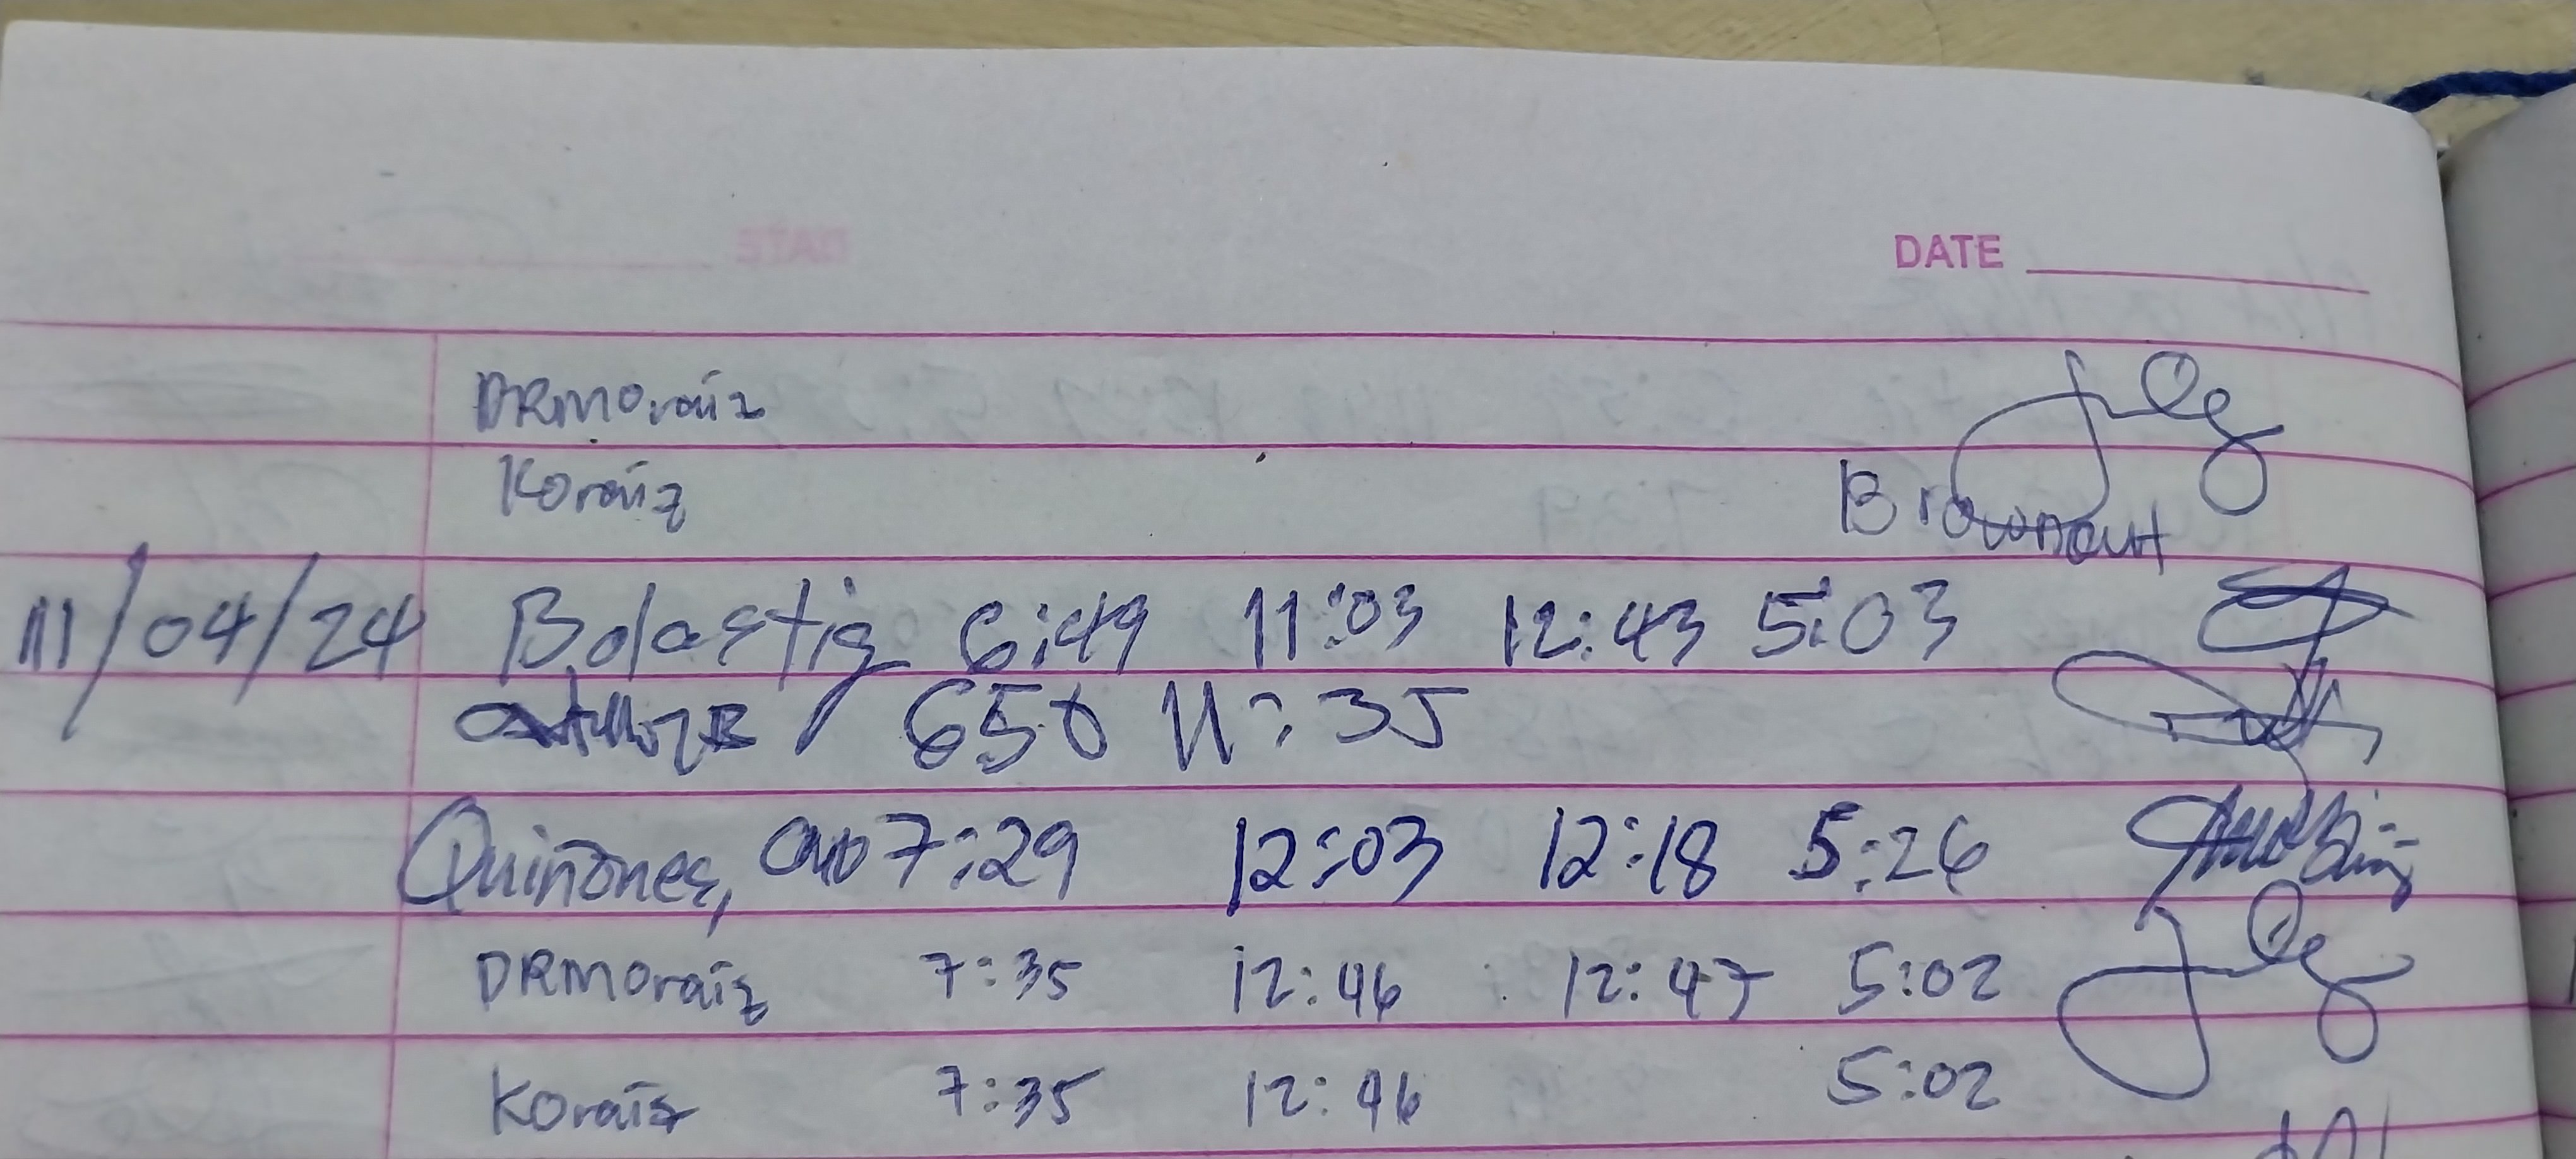 DATE
DRMoraiz
Koraiz Brownout
11/04/24 Bolastig 6:49 11:03 12:43 5:03
650 11:35
Quiñones, 7:29 12:03 12:18 5:26
DRMoraiz 7:35 12:46 12:47 5:02
Koraiz 7:35 12:46 5:02